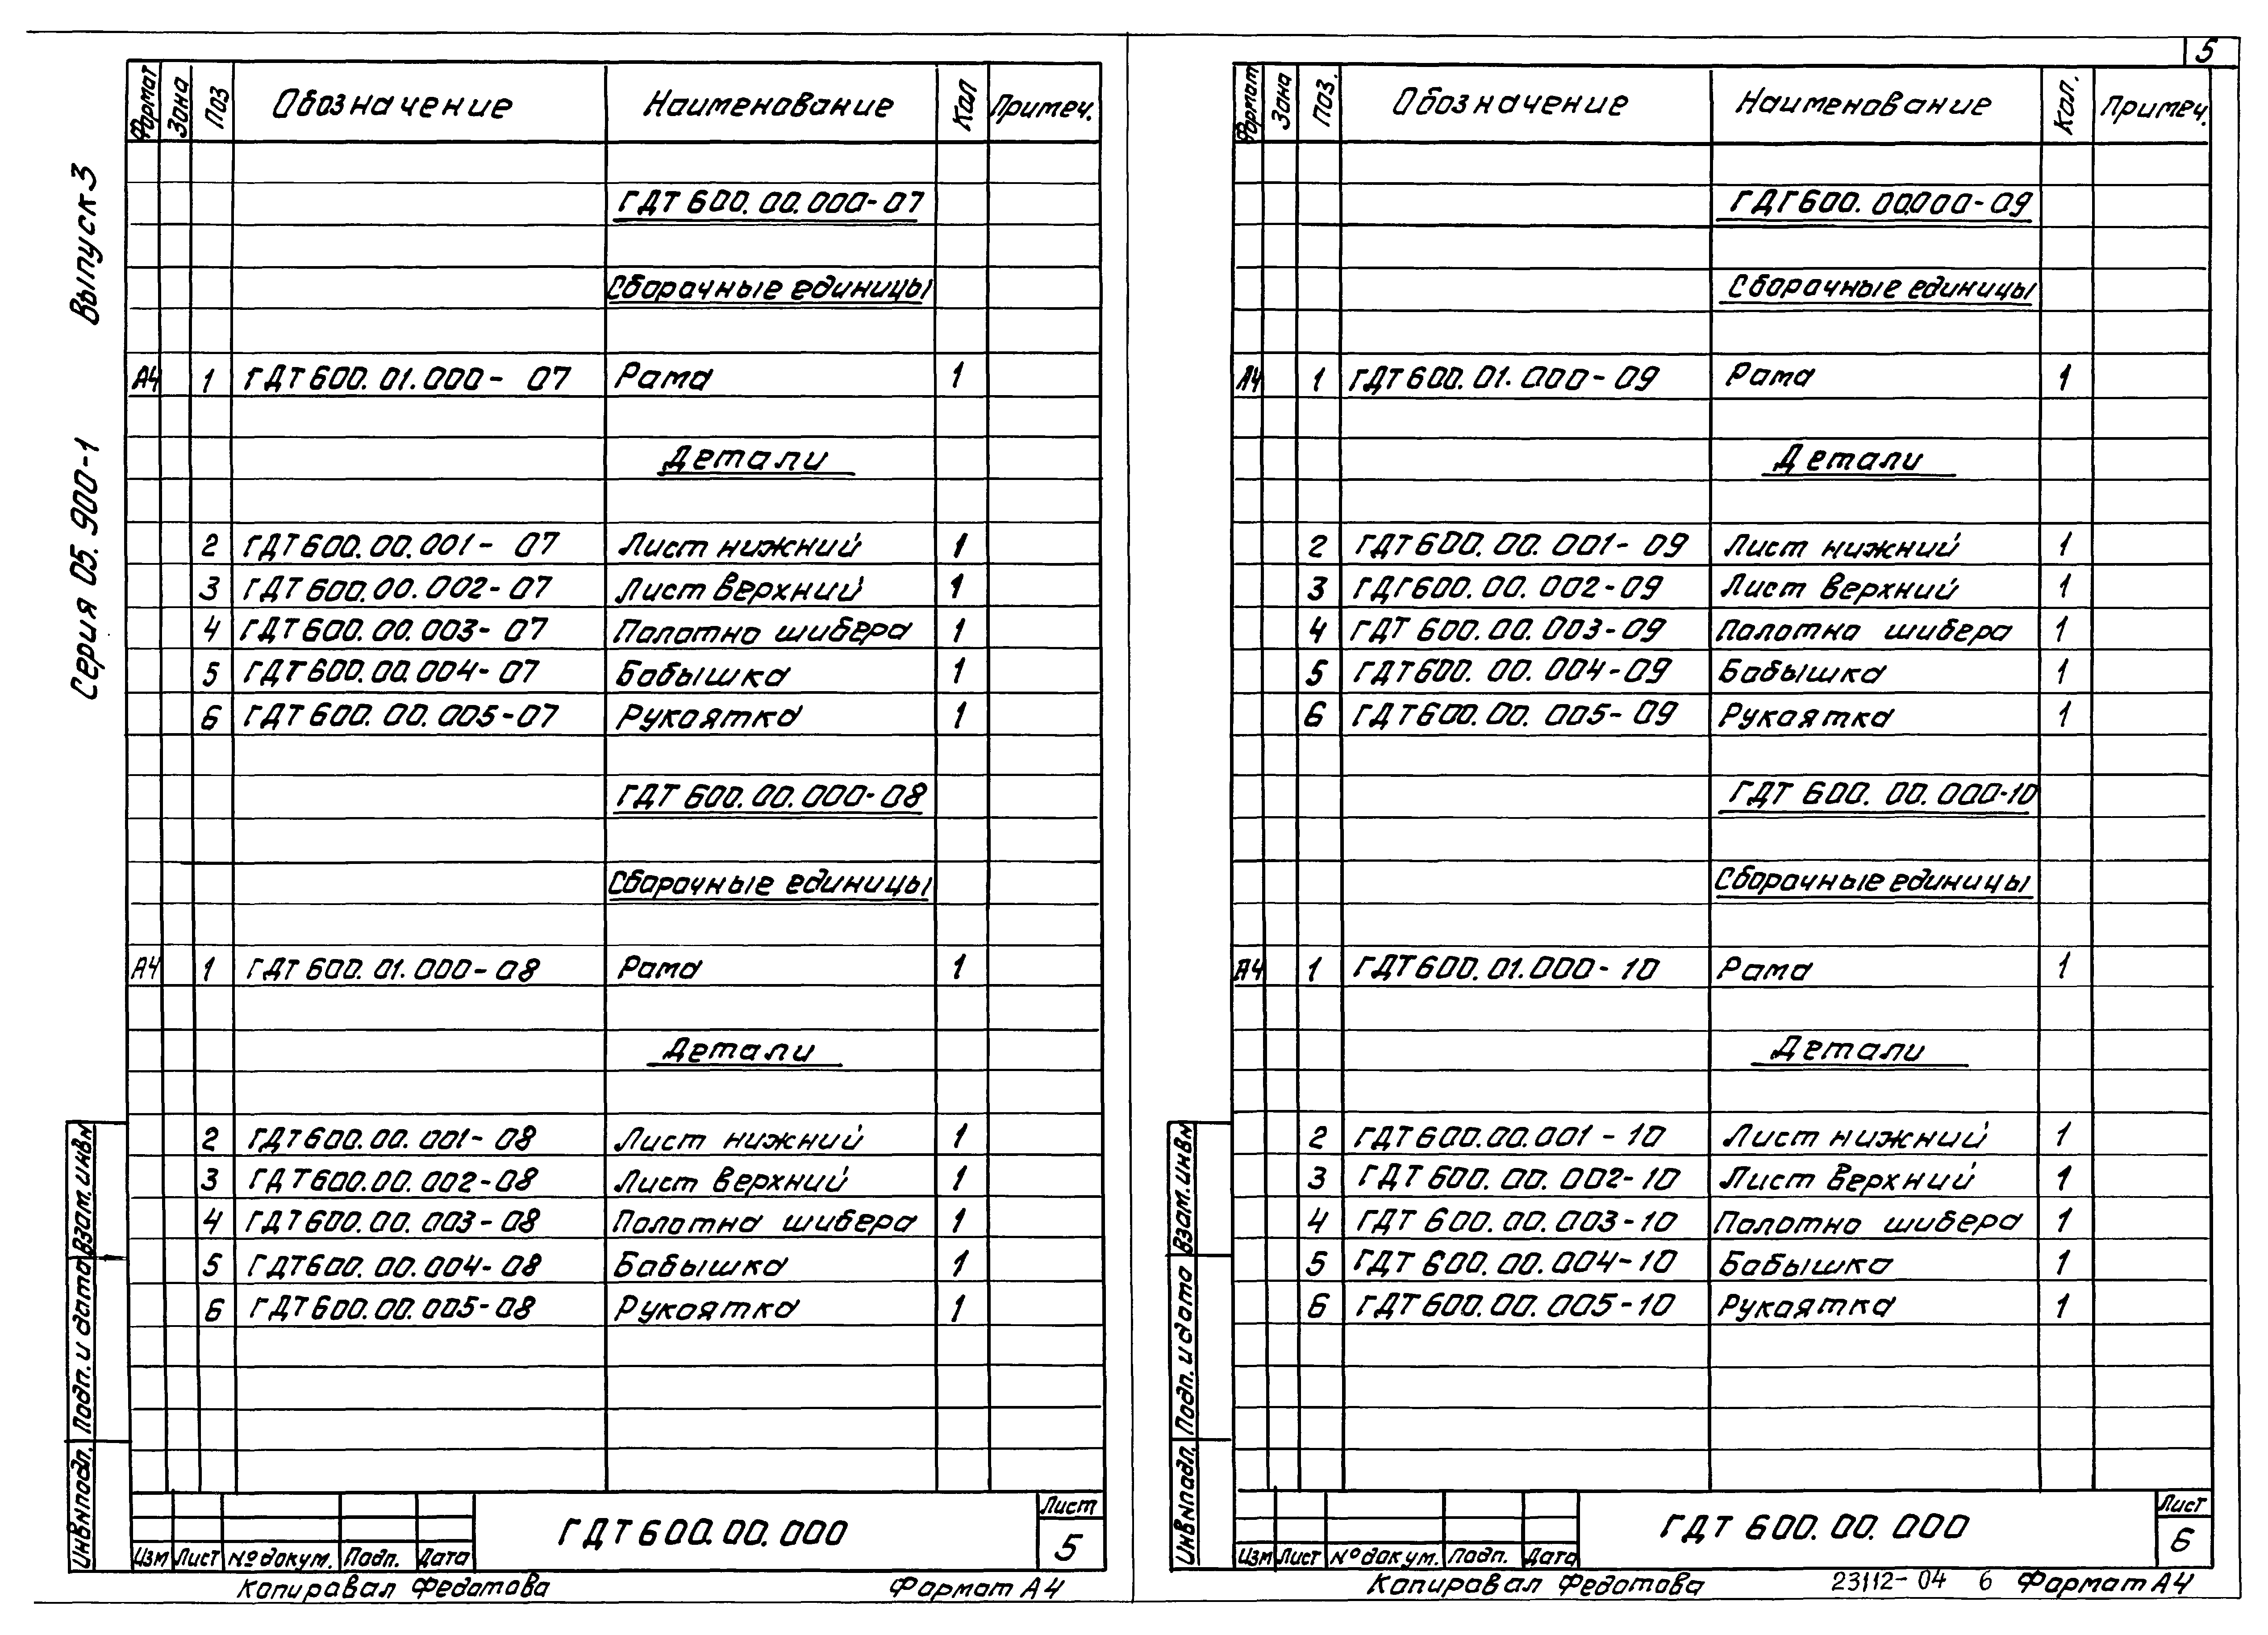 5
Серия 05.900-1 Выпуск 3
Формат Зона Поз Обозначение Наименование Кол Примеч.
ГДТ 600.00.000-07
Сборочные единицы
А4 1 ГДТ 600.01.000-07 Рама 1
Детали
2 ГДТ 600.00.001-07 Лист нижний 1
3 ГДТ 600.00.002-07 Лист верхний 1
4 ГДТ 600.00.003-07 Полотно шибера 1
5 ГДТ 600.00.004-07 Бобышка 1
6 ГДТ 600.00.005-07 Рукоятка 1
ГДТ 600.00.000-08
Сборочные единицы
А4 1 ГДТ 600.01.000-08 Рама 1
Детали
2 ГДТ 600.00.001-08 Лист нижний 1
3 ГДТ 600.00.002-08 Лист верхний 1
4 ГДТ 600.00.003-08 Полотно шибера 1
5 ГДТ 600.00.004-08 Бобышка 1
6 ГДТ 600.00.005-08 Рукоятка 1
Инв№подл. Подп. и дата Взам. инв№
Изм Лист № докум. Подп. Дата
ГДТ 600.00.000
Лист
5
Копировал Федотова Формат А4
Формат Зона Поз. Обозначение Наименование Кол. Примеч.
ГДГ600.00.000-09
Сборочные единицы
А4 1 ГДТ 600.01.000-09 Рама 1
Детали
2 ГДТ 600.00.001-09 Лист нижний 1
3 ГДГ600.00.002-09 Лист верхний 1
4 ГДТ 600.00.003-09 Полотно шибера 1
5 ГДТ 600.00.004-09 Бобышка 1
6 ГДТ 600.00.005-09 Рукоятка 1
ГДТ 600.00.000-10
Сборочные единицы
А4 1 ГДТ 600.01.000-10 Рама 1
Детали
2 ГДТ 600.00.001-10 Лист нижний 1
3 ГДТ 600.00.002-10 Лист верхний 1
4 ГДТ 600.00.003-10 Полотно шибера 1
5 ГДТ 600.00.004-10 Бобышка 1
6 ГДТ 600.00.005-10 Рукоятка 1
Инв№подл. Подп. и дата Взам. инв№
Изм Лист № докум. Подп. Дата
ГДТ 600.00.000
Лист
6
Копировал Федотова 23112-04 6 Формат А4